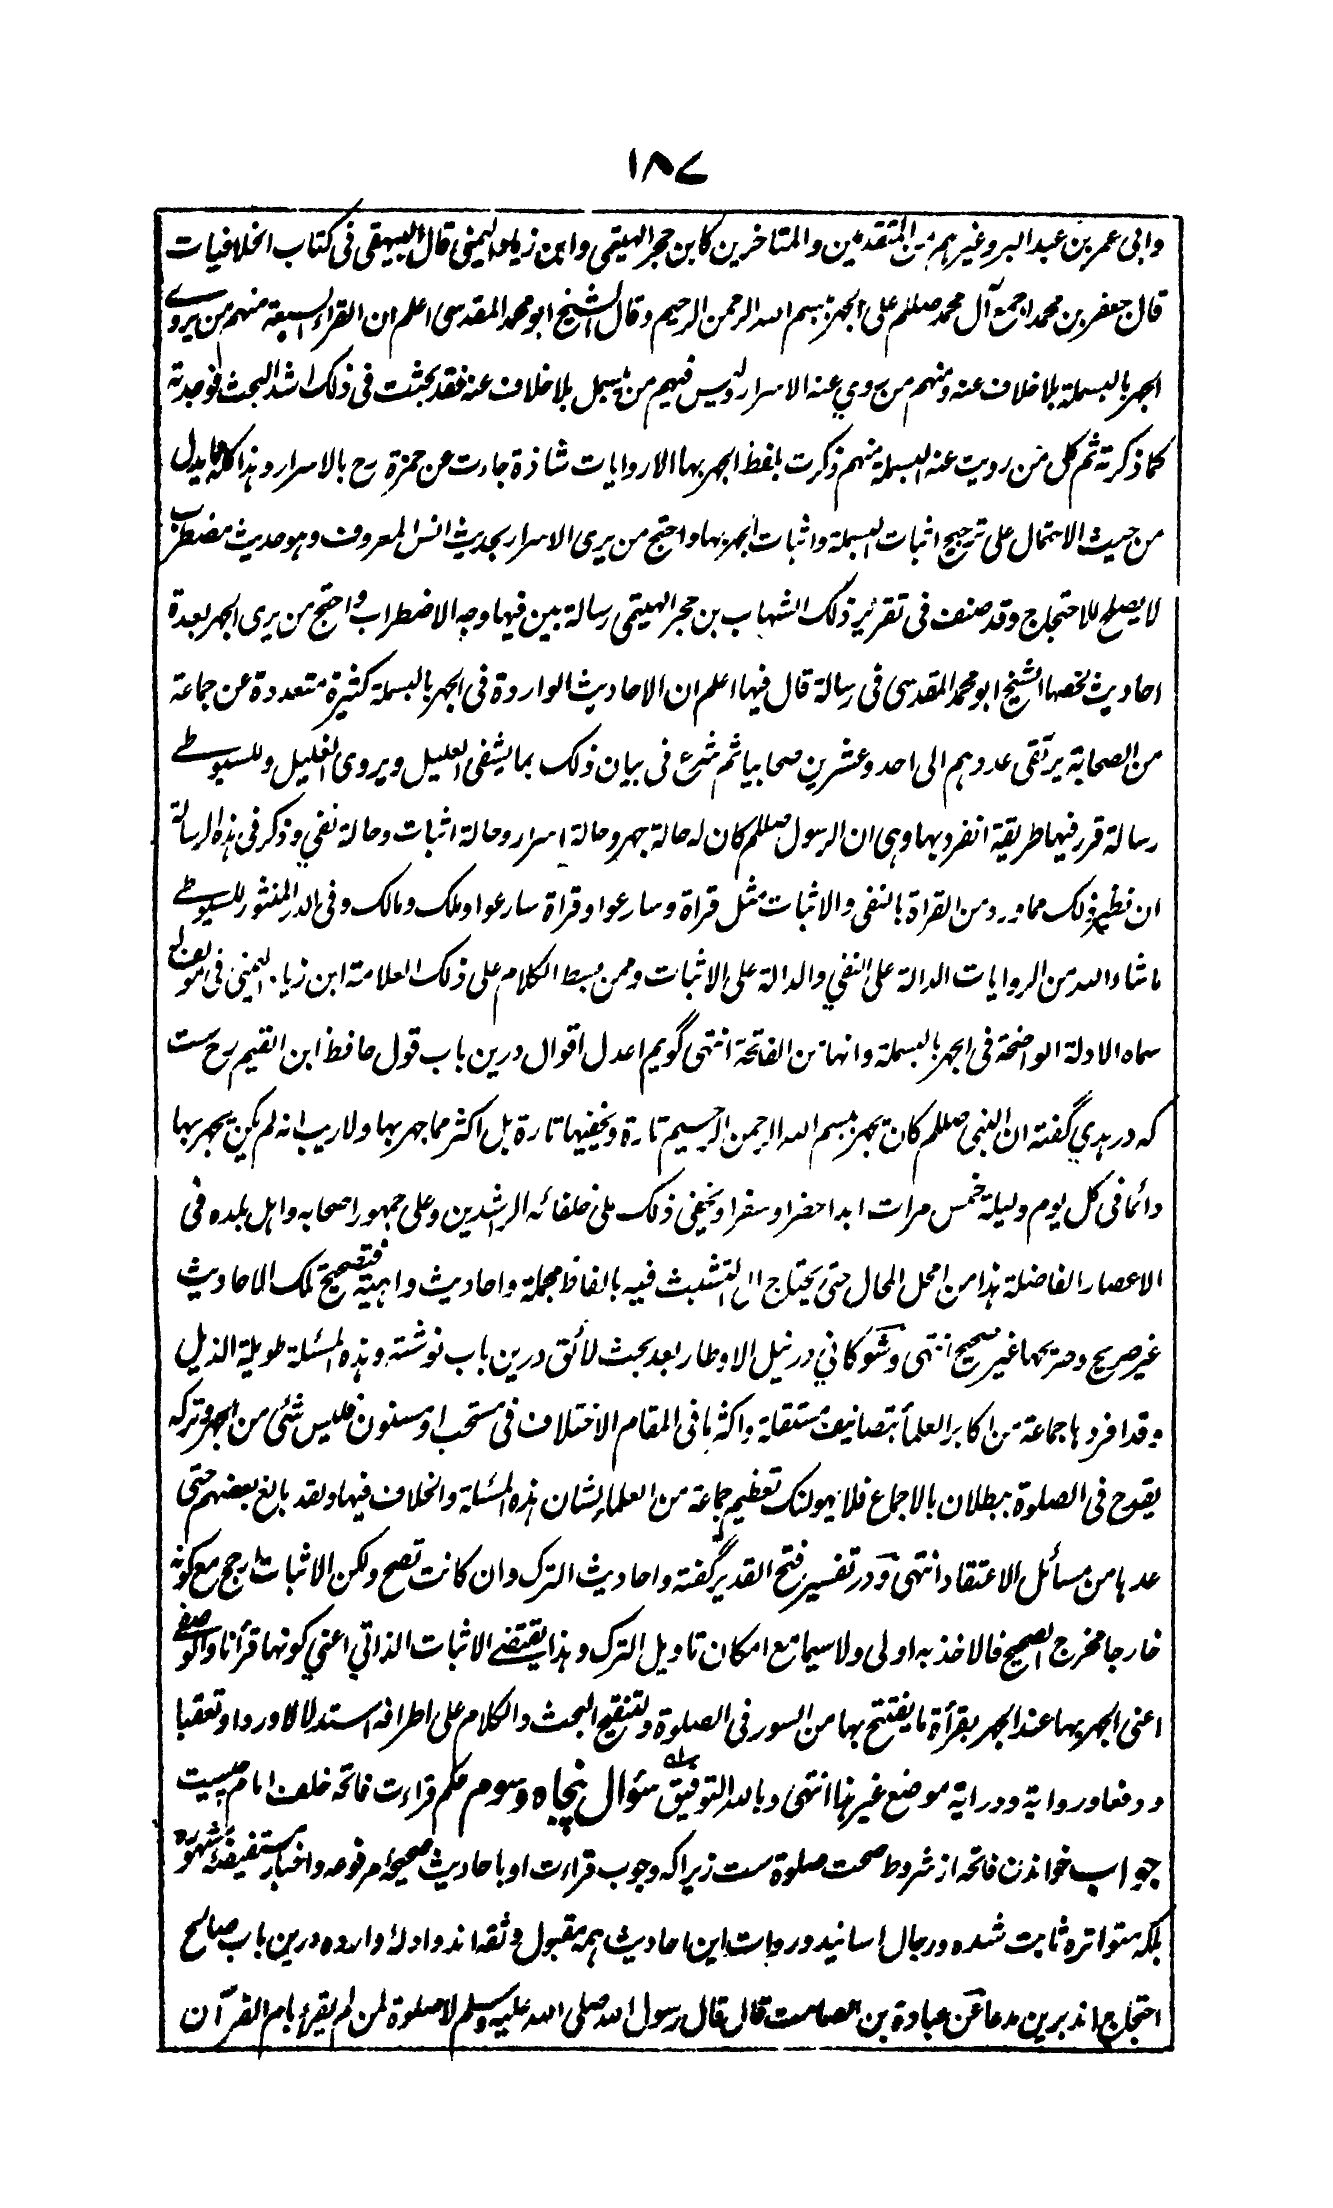 ۱۸۷
وابی عمر بن عبدالبر وغیرہم من المتقدمین والمتاخرین کابن حجر الہیتمی وابن زیاد الیمنی قال البیہقی فی کتاب الخلافیات
قال جعفر بن محمد اجمع آل محمد صللم علی الجہر ببسم اللہ الرحمن الرحیم وقال الشیخ ابو محمد المقدسی اعلم ان القراء السبعۃ منہم من یروے
الجہر بالبسملۃ بلا خلاف عنہ ومنہم من روی عنہ الاسرار ولیس فیہم من یبسمل بلا خلاف عنہ فقد بحثت فی ذلک اشد البحث فوجدتہ
کما ذکرتہ ثم کل من رویت عنہ البسملۃ منہم ذکرت بلفظ الجہر بہا الا روایات شاذۃ جاءت عن حمزۃ رح بالاسرار وہذا کلہ مما یدل
من حیث الاجمال علی ترجیح اثبات البسملۃ واثبات الجہر بہا واحتج من یری الاسرار بحدیث انس المعروف وہو حدیث مضطرب
لا یصلح للاحتجاج وقد صنف فی تقریر ذلک الشہاب بن حجر الہیتمی رسالۃ بین فیہا وجہ الاضطراب واحتج من یری الجہر بعدۃ
احادیث لخصہا الشیخ ابو محمد المقدسی فی رسالۃ قال فیہا اعلم ان الاحادیث الواردۃ فی الجہر بالبسملۃ کثیرۃ متعددۃ عن جماعۃ
من الصحابۃ یرتقی عددہم الی احد وعشرین صحابیا ثم شرع فی بیان ذلک بما یشفی العلیل ویروی الغلیل وللسیوطے
رسالۃ قرر فیہا طریقۃ انفرد بہا وہی ان الرسول صللم کان لہ حالۃ جہر وحالۃ اسرار وحالۃ اثبات وحالۃ نفی وذکر فی ہذہ الرسالۃ
ان نظیر ذلک مما ورد من القراۃ بالنفی والاثبات مثل قراۃ وسارعوا وقراۃ سارعوا وملک ومالک وفی الدر المنثور للسیوطے
ما شاء اللہ من الروایات الدالۃ علی النفی والدالۃ علی الاثبات وممن بسط الکلام علی ذلک العلامۃ ابن زیاد الیمنی فی مولف
سماہ الادلۃ الواضحۃ فی الجہر بالبسملۃ وانہا من الفاتحۃ انتہی گویم اعدل اقوال درین باب قول حافظ ابن القیم رح ست
کہ در ہدی گفتہ ان النبی صللم کان یجہر ببسم اللہ الرحمن الرحیم تارۃ ویخفیہا تارۃ بل اکثر مما جہر بہا ولا ریب انہ لم یکن یجہر بہا
دائما فی کل یوم ولیلۃ خمس مرات ابدا حضرا وسفرا ویخفی ذلک علی خلفائہ الراشدین وعلی جمہور اصحابہ واہل بلدہ فی
الاعصار الفاضلۃ ہذا من امحل المحال حتی یحتاج الی التشبث فیہ بالفاظ مجملۃ واحادیث واہیۃ فتصحیح تلک الاحادیث
غیر صریح وصریحہا غیر صحیح انتہی وشوکانی در نیل الاوطار بعد بحث لائق درین باب نوشتہ وہذہ المسئلۃ طویلۃ الذیل
وقد افردہا جماعۃ من اکابر العلماء بتصانیف مستقلۃ واکثر ما فی المقام الاختلاف فی مستحب او مسنون فلیس شئی من الجہر وترکہ
یقدح فی الصلوۃ ببطلان بالاجماع فلا یہولنک تعظیم جماعۃ من العلماء لشان ہذہ المسئلۃ والخلاف فیہا ولقد بالغ بعضہم حتی
عدہا من مسائل الاعتقاد انتہی ودر تفسیر فتح القدیر گفتہ واحادیث الترک وان کانت تصح ولکن الاثبات ارجح مع کونہ
خارجا مخرج الصحیح فالاخذ بہ اولی ولا سیما مع امکان تاویل الترک وہذا یقتضے الاثبات الذاتی اعنی کونہا قرآنا والوصفے
اعنی الجہر بہا عند الجہر بقرأۃ ما یفتتح بہا من السور فی الصلوۃ ولتنقیح البحث والکلام علی اطرافہ استدلالا وردا وتعقبا
ودفعا وروایۃ ودرایۃ موضع غیر ہذا انتہی وباللہ التوفیق سؤال پنجاہ وسوم حکم قراءت فاتحہ خلف امام چیست
جواب خواندن فاتحہ از شروط صحت صلوۃ ست زیراکہ وجوب قراءت او باحادیث صحیحۂ مرفوعہ واخبار مستفیضۂ مشہورہ
بلکہ متواترہ ثابت شدہ ورجال اسانید وروات این احادیث ہمہ مقبول وثقہ اند وادلۂ واردہ درین باب صالح
احتجاج اند برین مدعا عن عبادۃ بن الصامت قال قال رسول اللہ صلی اللہ علیہ وسلم لا صلوۃ لمن لم یقرء بام القرآن